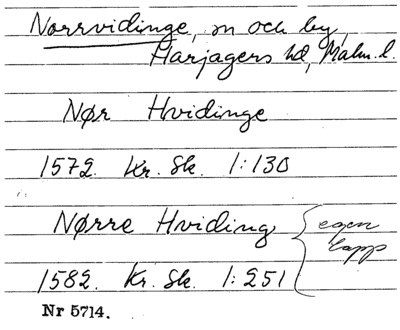 Norrvidinge, sn och by,
Harjagers hd, Malm. l.
Nør Hvidinge
1572. Kr. Sk. 1:130
Nørre Hviding
egen
lapp
1582. Kr. Sk. 1:251
Nr 5714.